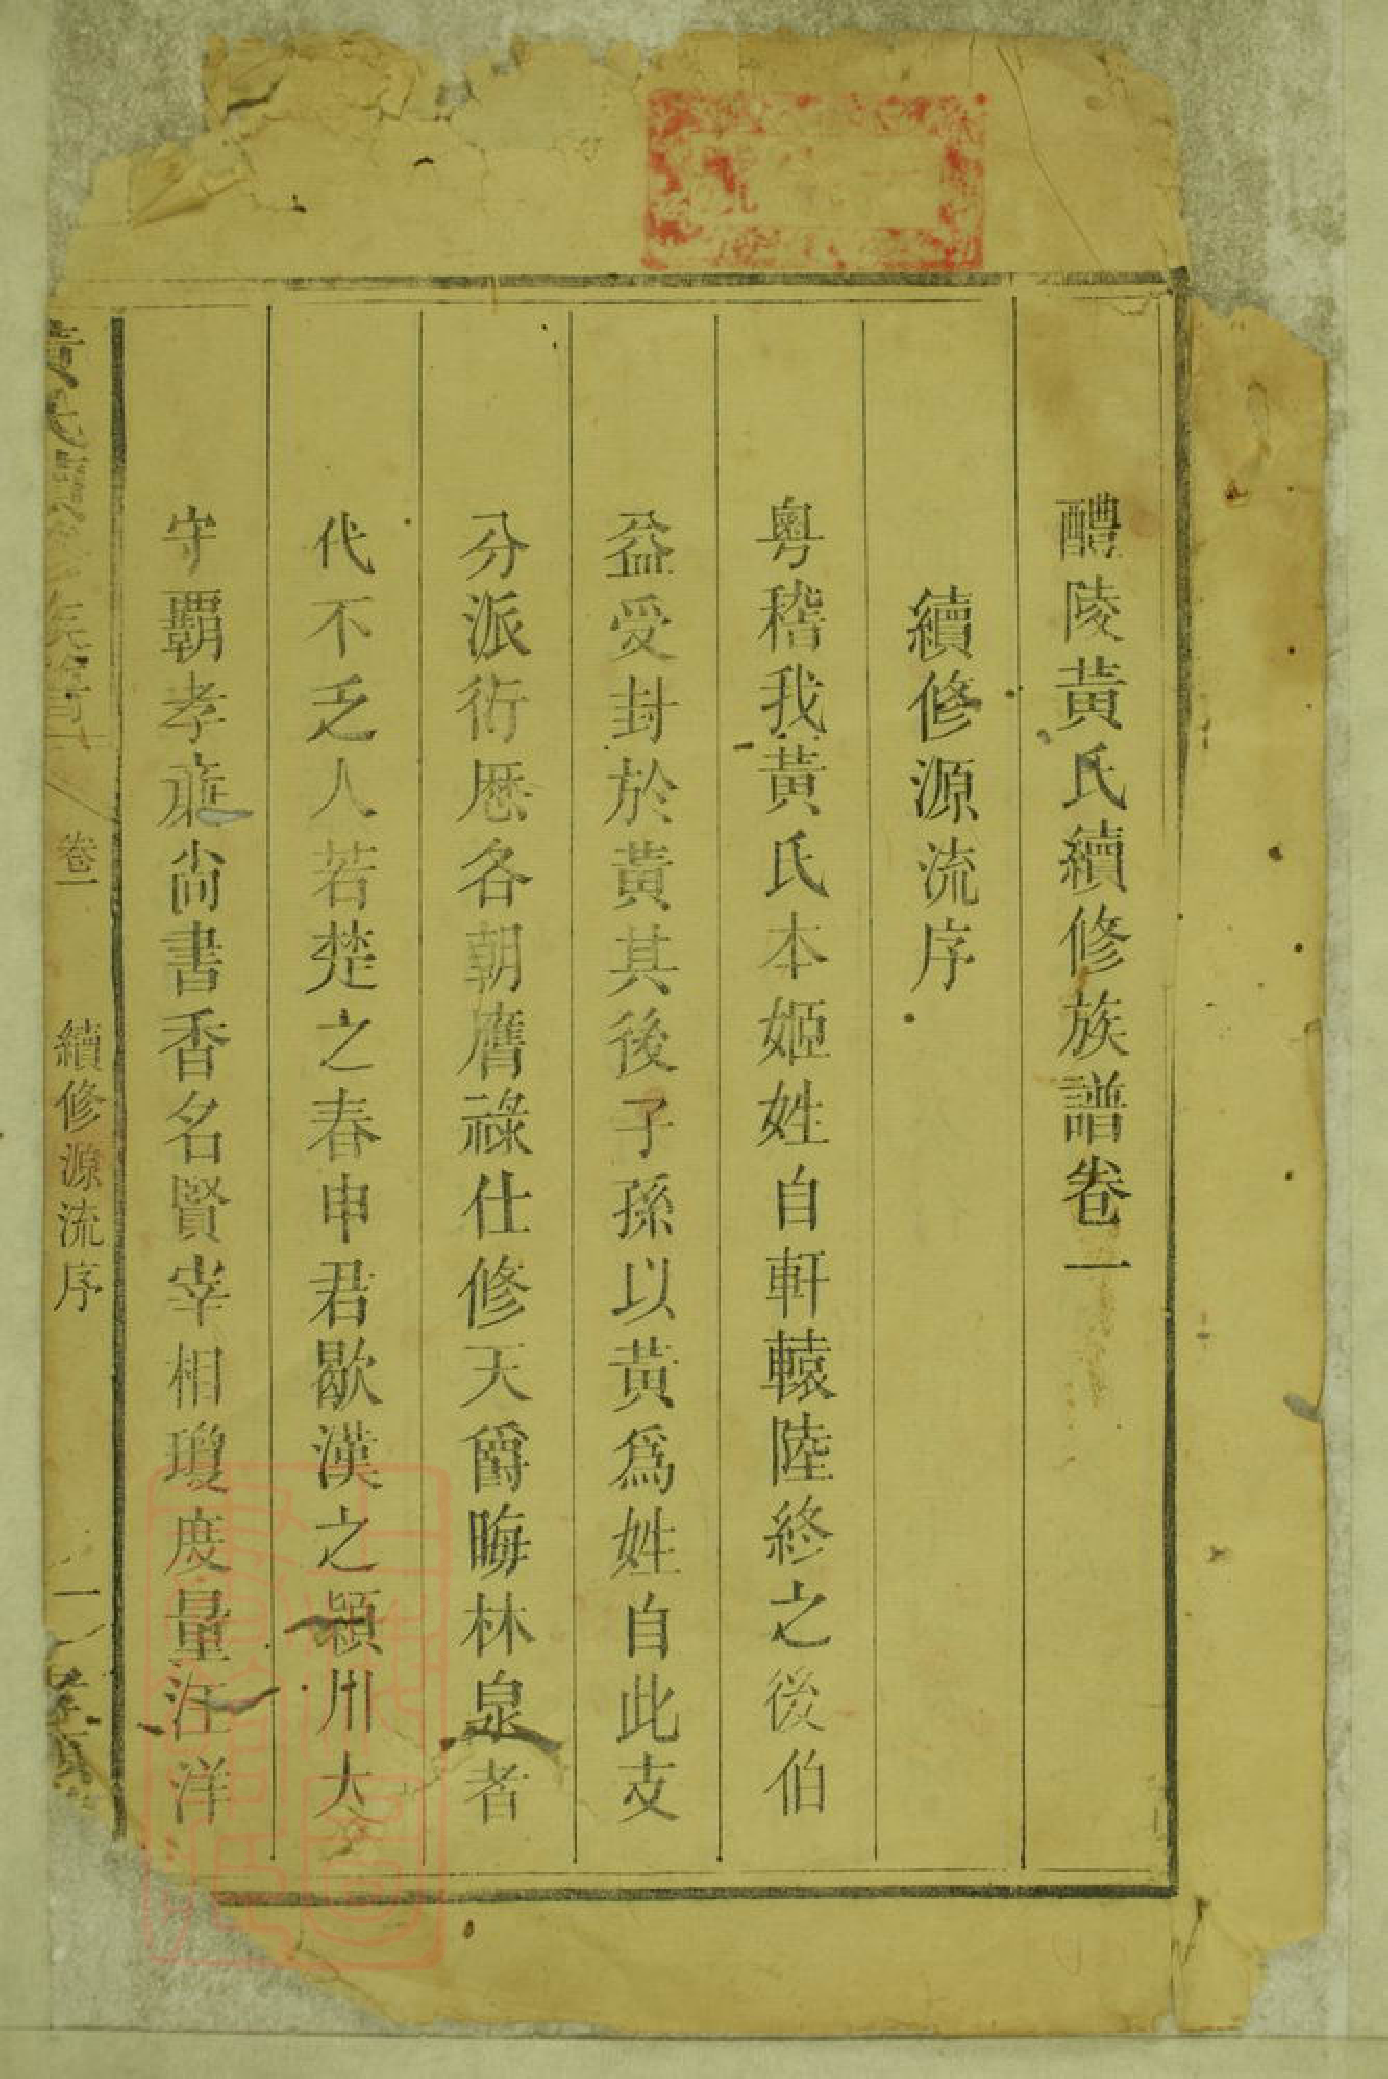 醴陵黃氏續修族譜卷一
續修源流序
粵稽我黃氏本姬姓自軒轅陸終之後伯
益受封於黃其後子孫以黃爲姓自此支
分派衍歷各朝膺祿仕修天爵晦林泉者
代不乏人若楚之春申君歇漢之潁川大
守覇孝廉尚書香名賢宰相瓊度量汪洋
卷一
續修源流序
一